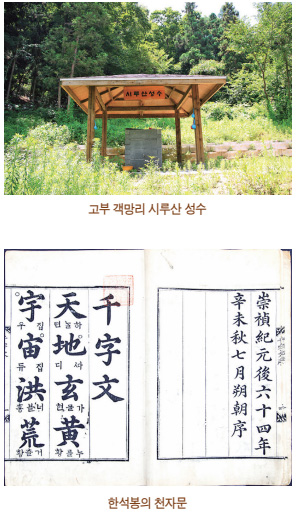 시루산성수
고부 객망리 시루산 성수
崇禎紀元後六十四年
辛未秋七月朔朝序
千字文
天 하늘텬 地 디 玄 가믈현 黃 누를황
宇 집우 宙 집듀 洪 너블홍 荒 거츨황
한석봉의 천자문